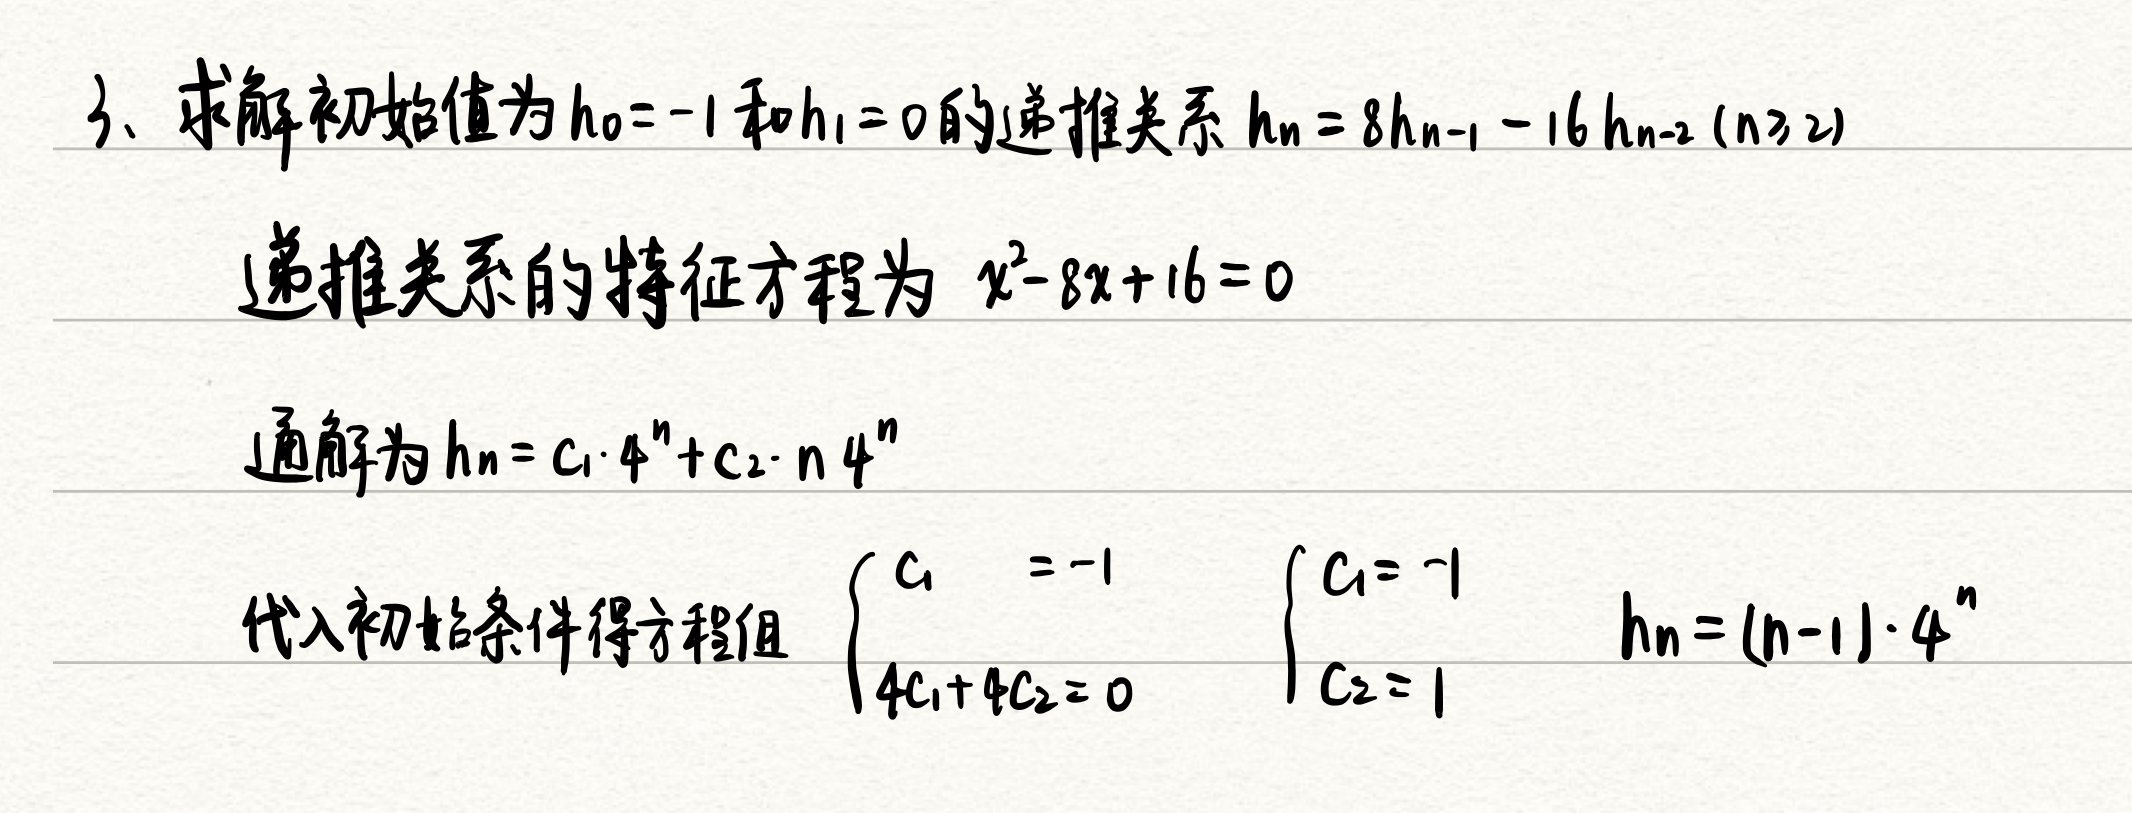 3、求解初始值为h₀=-1和h₁=0的递推关系 hₙ=8hₙ₋₁-16hₙ₋₂(n≥2)
递推关系的特征方程为 x²-8x+16=0
通解为hₙ=c₁·4ⁿ+c₂·n4ⁿ
代入初始条件得方程组 { c₁ =-1 { c₁=-1 hₙ=(n-1)·4ⁿ
4c₁+4c₂=0 c₂=1